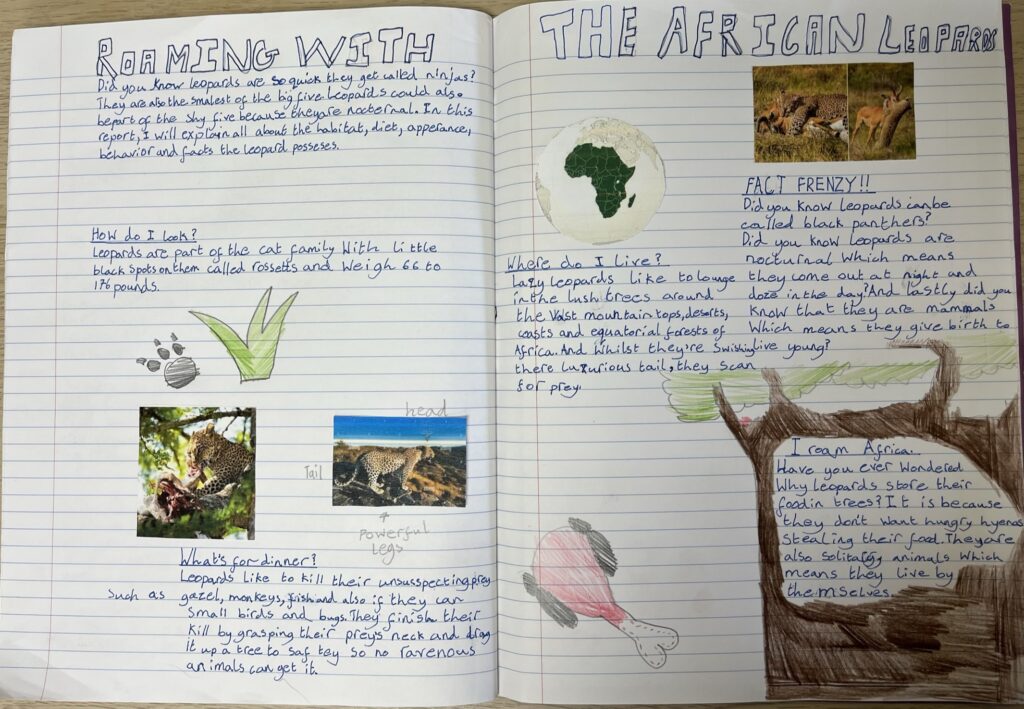 ROAMING WITH
Did you know leopards are so quick they get called ninjas?
They are also the smalest of the big five Leopards could also
bepart of the shy five because theyare nocternal. In this
report, I will explain all about the habitat, diet, apperance,
behavior and facts the leopard posseses.
How do I look?
Leopards are part of the cat family With little
black spots on them called rossetts and weigh 66 to
176 pounds.
head
Tail
Powerful
Legs
What's for dinner?
Leopards like to kill their unsuspecting prey
Such as gazel, monkeys, fish and also if they can
small birds and bugs. They finish their
kill by grasping their preys neck and drag
It up a tree to saf tey so no ravenous
animals can get it.
THE AFRICAN LEOPARDS
Where do I live?
Lazy leopards like to lounge
in the lush trees around
the Vast mountain tops, deserts,
coasts and equatorial forests of
Africa. And Whilst they're Swishing
there luxurious tail, they scan
for prey.
FACT FRENZY!!
Did you know leopards can be
called black panthers?
Did you know leopards are
nocturnal Which means
they come out at night and
doze in the day? And lastly did you
know that they are mammals
Which means they give birth to
live young?
I roam Africa.
Have you ever Wondered
Why leopards store their
food in trees? It is because
they don't want hungry hyenas
Stealing their food. They are
also solitary animals Which
means they live by
themselves.